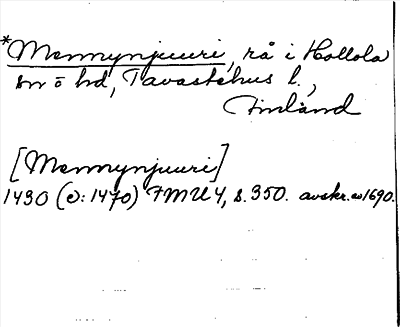 *Mennynjuuri, rå i Hollola
sn o hd, Tavastehus l.,
Finland
[Mennynjuuri]
1430 (o: 1470) FMU 4, s. 350. avskr. co 1690.